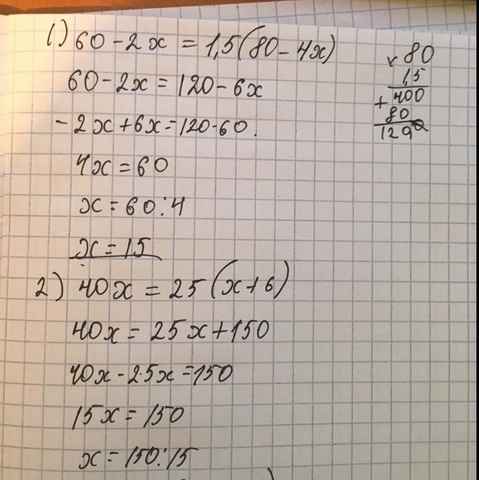 1.) 60-2x = 1,5(80-4x)
60-2x = 120-6x
-2x+6x=120-60.
4x = 60
x = 60:4
x = 15
× 80
1,5
+ 400
80
1200
2) 40x = 25(x+6)
40x = 25x+150
40x-25x=150
15x = 150
x = 150:15